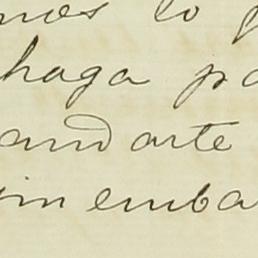 mos lo
haga pa
andarte
sin emba